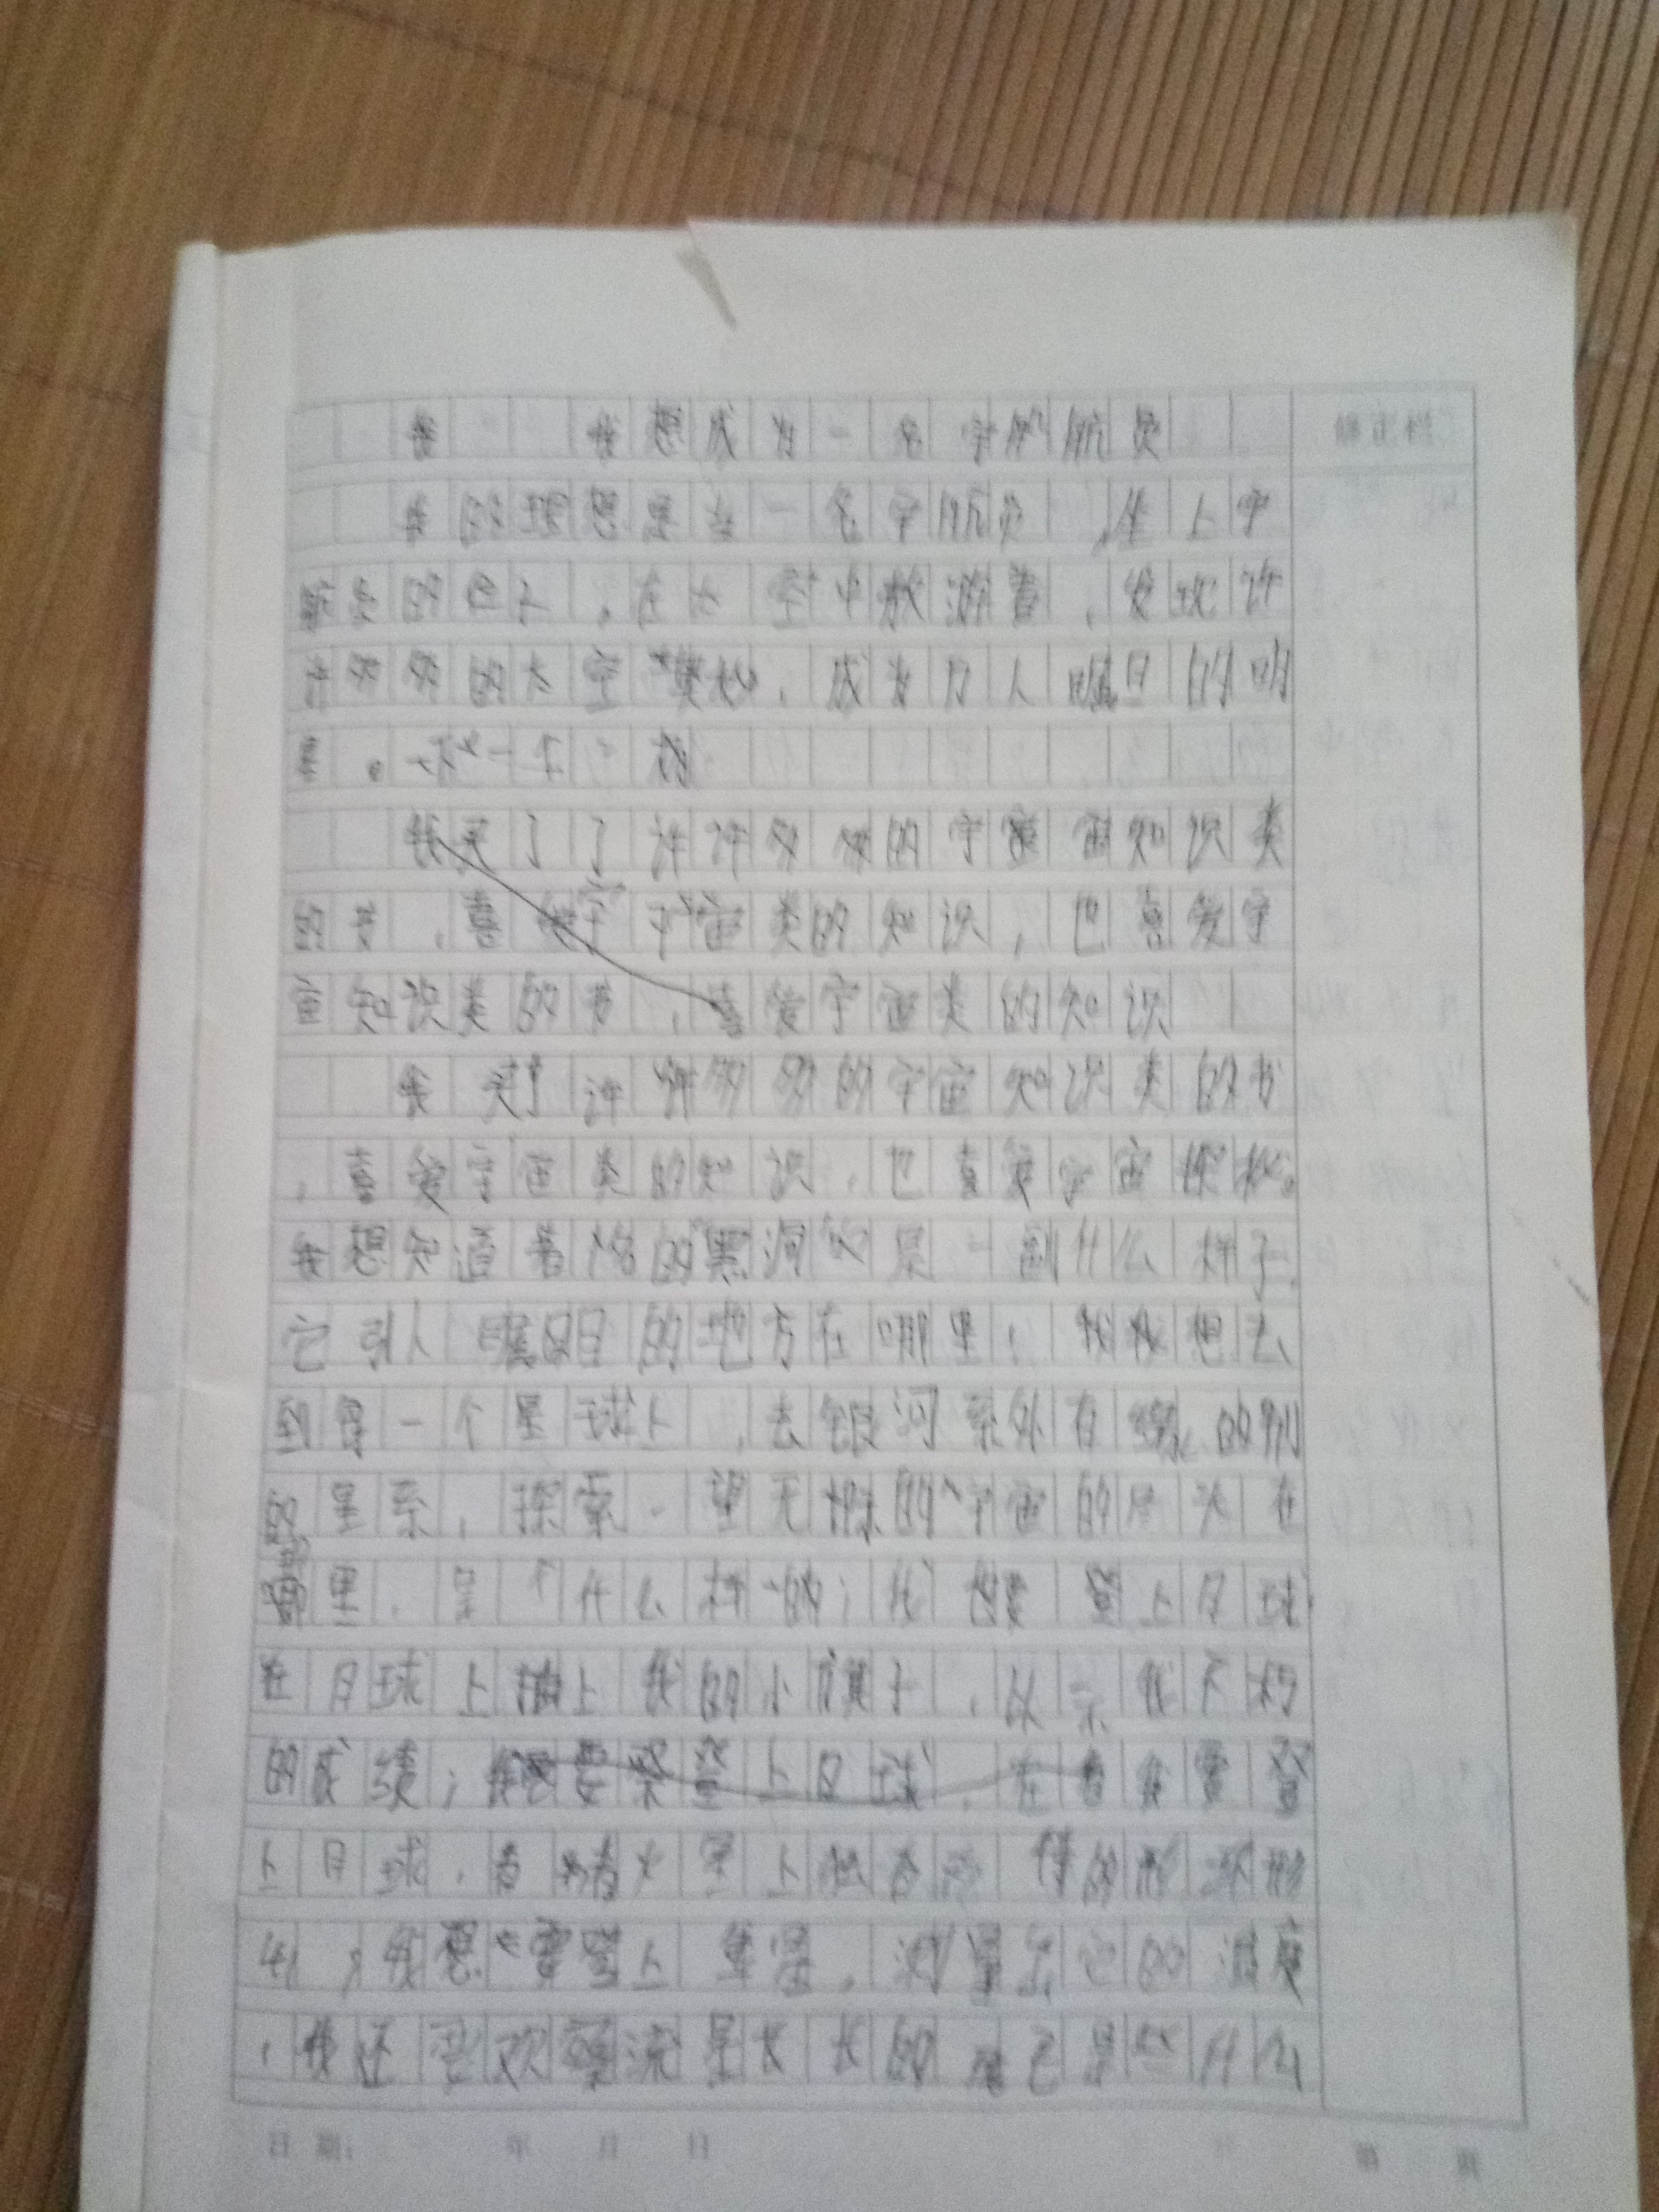 我 我想成为一名宇航员 修正栏
我的理想是当一名宇航员,坐上宇
在太空中放游着,发现许
许多多的太空奥秘,成为万人瞩目的明
星。
我买了了许许多多的宇宙知识类
的书,喜宇宙类的知识,也喜爱宇
宙知识类的书,喜爱宇宙类的知识
我买了许许多多的宇宙知识类的书
,喜爱宇宙类的知识,也喜爱宇宙探秘。
我想知道著名的黑洞是一副什么样子,
它引人瞩目的地方在哪里;我想去
到每一个星球上,去银河系外有的别
的星系,探索一望无际的宇宙的尽头在
哪里,是个什么样的;我要登上月球,
在月球上插上我的小旗子,以示我不朽
的成绩;我要登上月球,在看我要登
上月球,看看火星上
我想要登上,测量出它的温度
,我还喜欢流星长长的尾巴是些什么
日期: 年 月 日 第 页